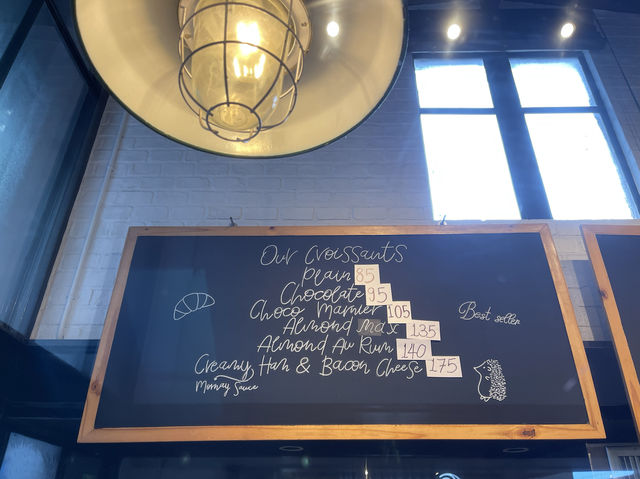 Our Croissants
Plain 85
Chocolate 95
Choco Marnier 105
Almond Max 135
Almond Au Rum 140
Creamy Ham & Bacon Cheese 175
Mornay Sauce
Best seller